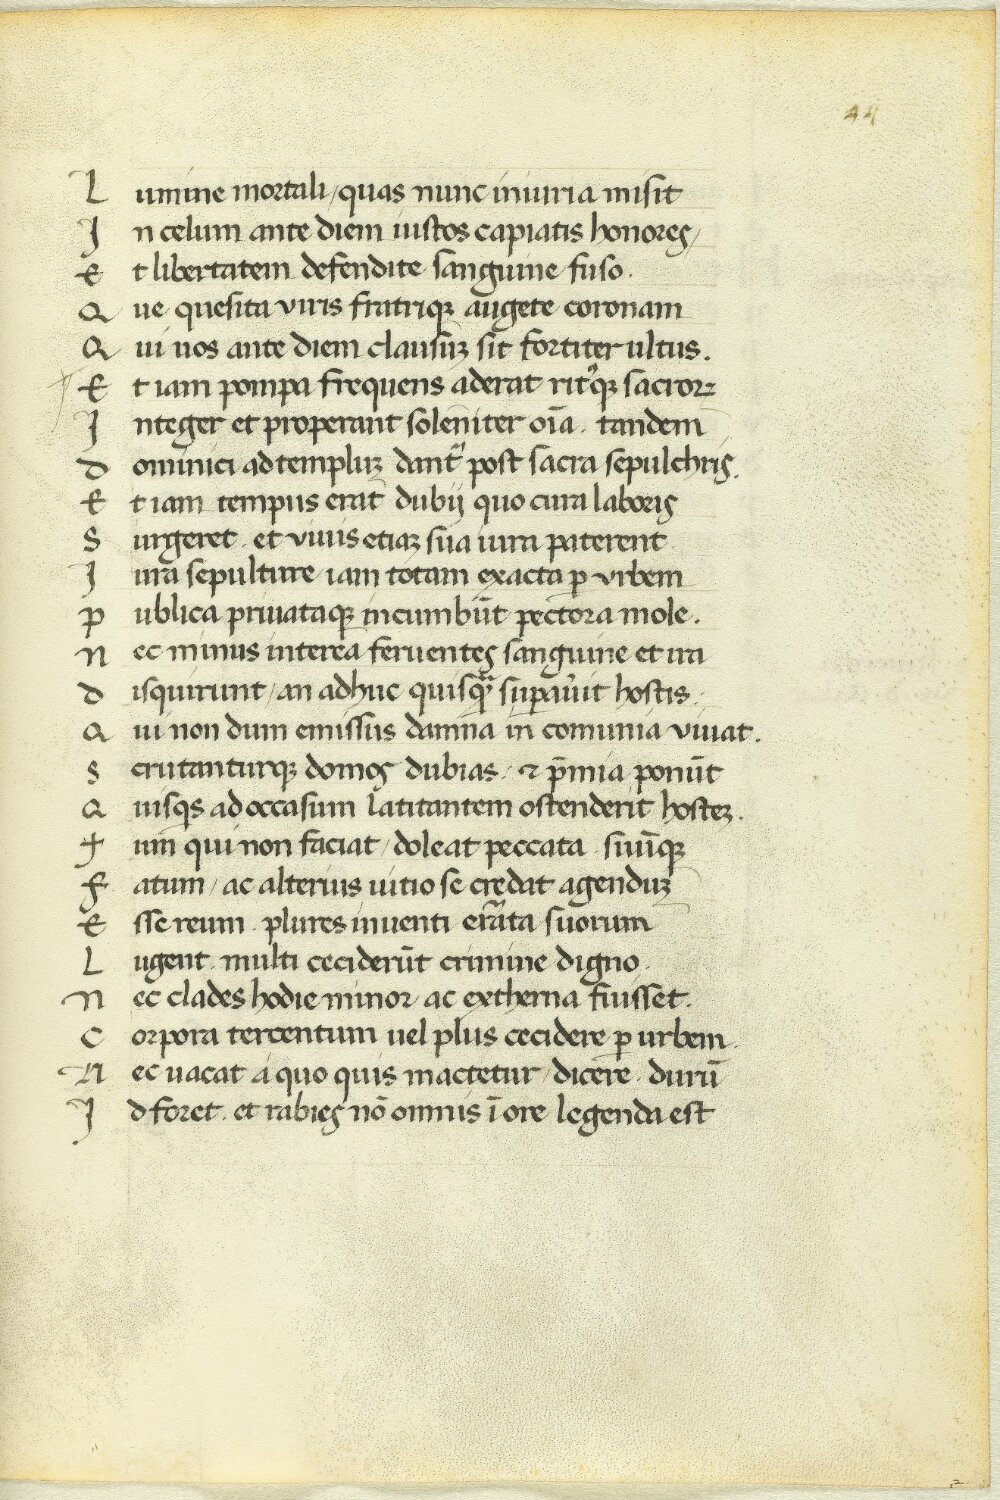 44
L umine mortali / quas nunc iniuria misit
J n celum ante diem iustos capiatis honores /
E t libertatem defendite sanguine fuso .
Q ue quesita viris fratriqꝫ augete coronam
Q ui uos ante diem clausuꝫ sit fortiter ultus .
E t iam pompa frequens aderat rit᾽qꝫ sacroꝝ
J nteger et properant soleniter oi̅a . tandem
D ominici ad templuꝫ dant᾽ post sacra sepulchris .
E t iam tempus erat dubij quo cura laboris
S urgeret . et viuis etiaꝫ sua iura paterent
J ura sepulture / iam totam exacta ꝑ vrbem
P ublica priuataqꝫ incumbu̅t pectora mole .
N ec minus interea feruentes sanguine et ira
D isquirunt / an adhuc quisqꝫ sup̱au̓it hostis .
Q ui non dum emissus damna in comunia viuat .
S crutanturqꝫ domos dubias . ⁊ p̅mia ponu̅t
Q uisqꝫ ad occasum latitantem ostenderit hosteꝫ .
T um qui non faciat / doleat peccata . suu̅qꝫ
F atum / ac alterius uitio se credat agenduꝫ
E sse reum . plures inuenti errata suorum
L ugent . multi cecideru̅t crimine digno .
N ec clades hodie minor / ac extherna fuisset .
C orpora tercentum uel plus cecidere ꝑ urbem .
N ec uacat a quo quis mactetur / dicere . duru̅
J d foret . et rabies no̅ omnis i̅ ore legenda est